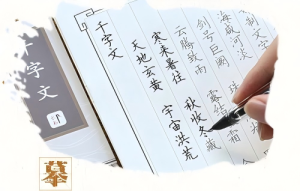 千字文
千字文
天地玄黄 宇宙洪荒
寒来暑往 秋收冬藏
云腾致雨 露结 霜
剑号巨阙
海咸河淡
制文字